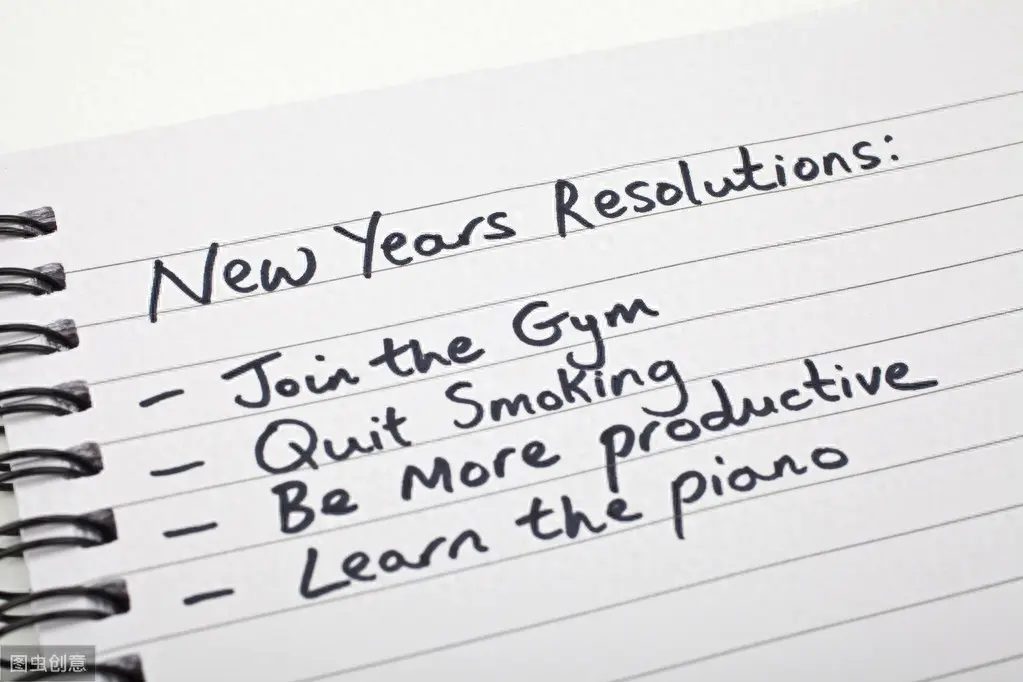 New Years Resolutions:
- Join the Gym
- Quit Smoking
- Be More productive
- Learn the piano
图虫创意